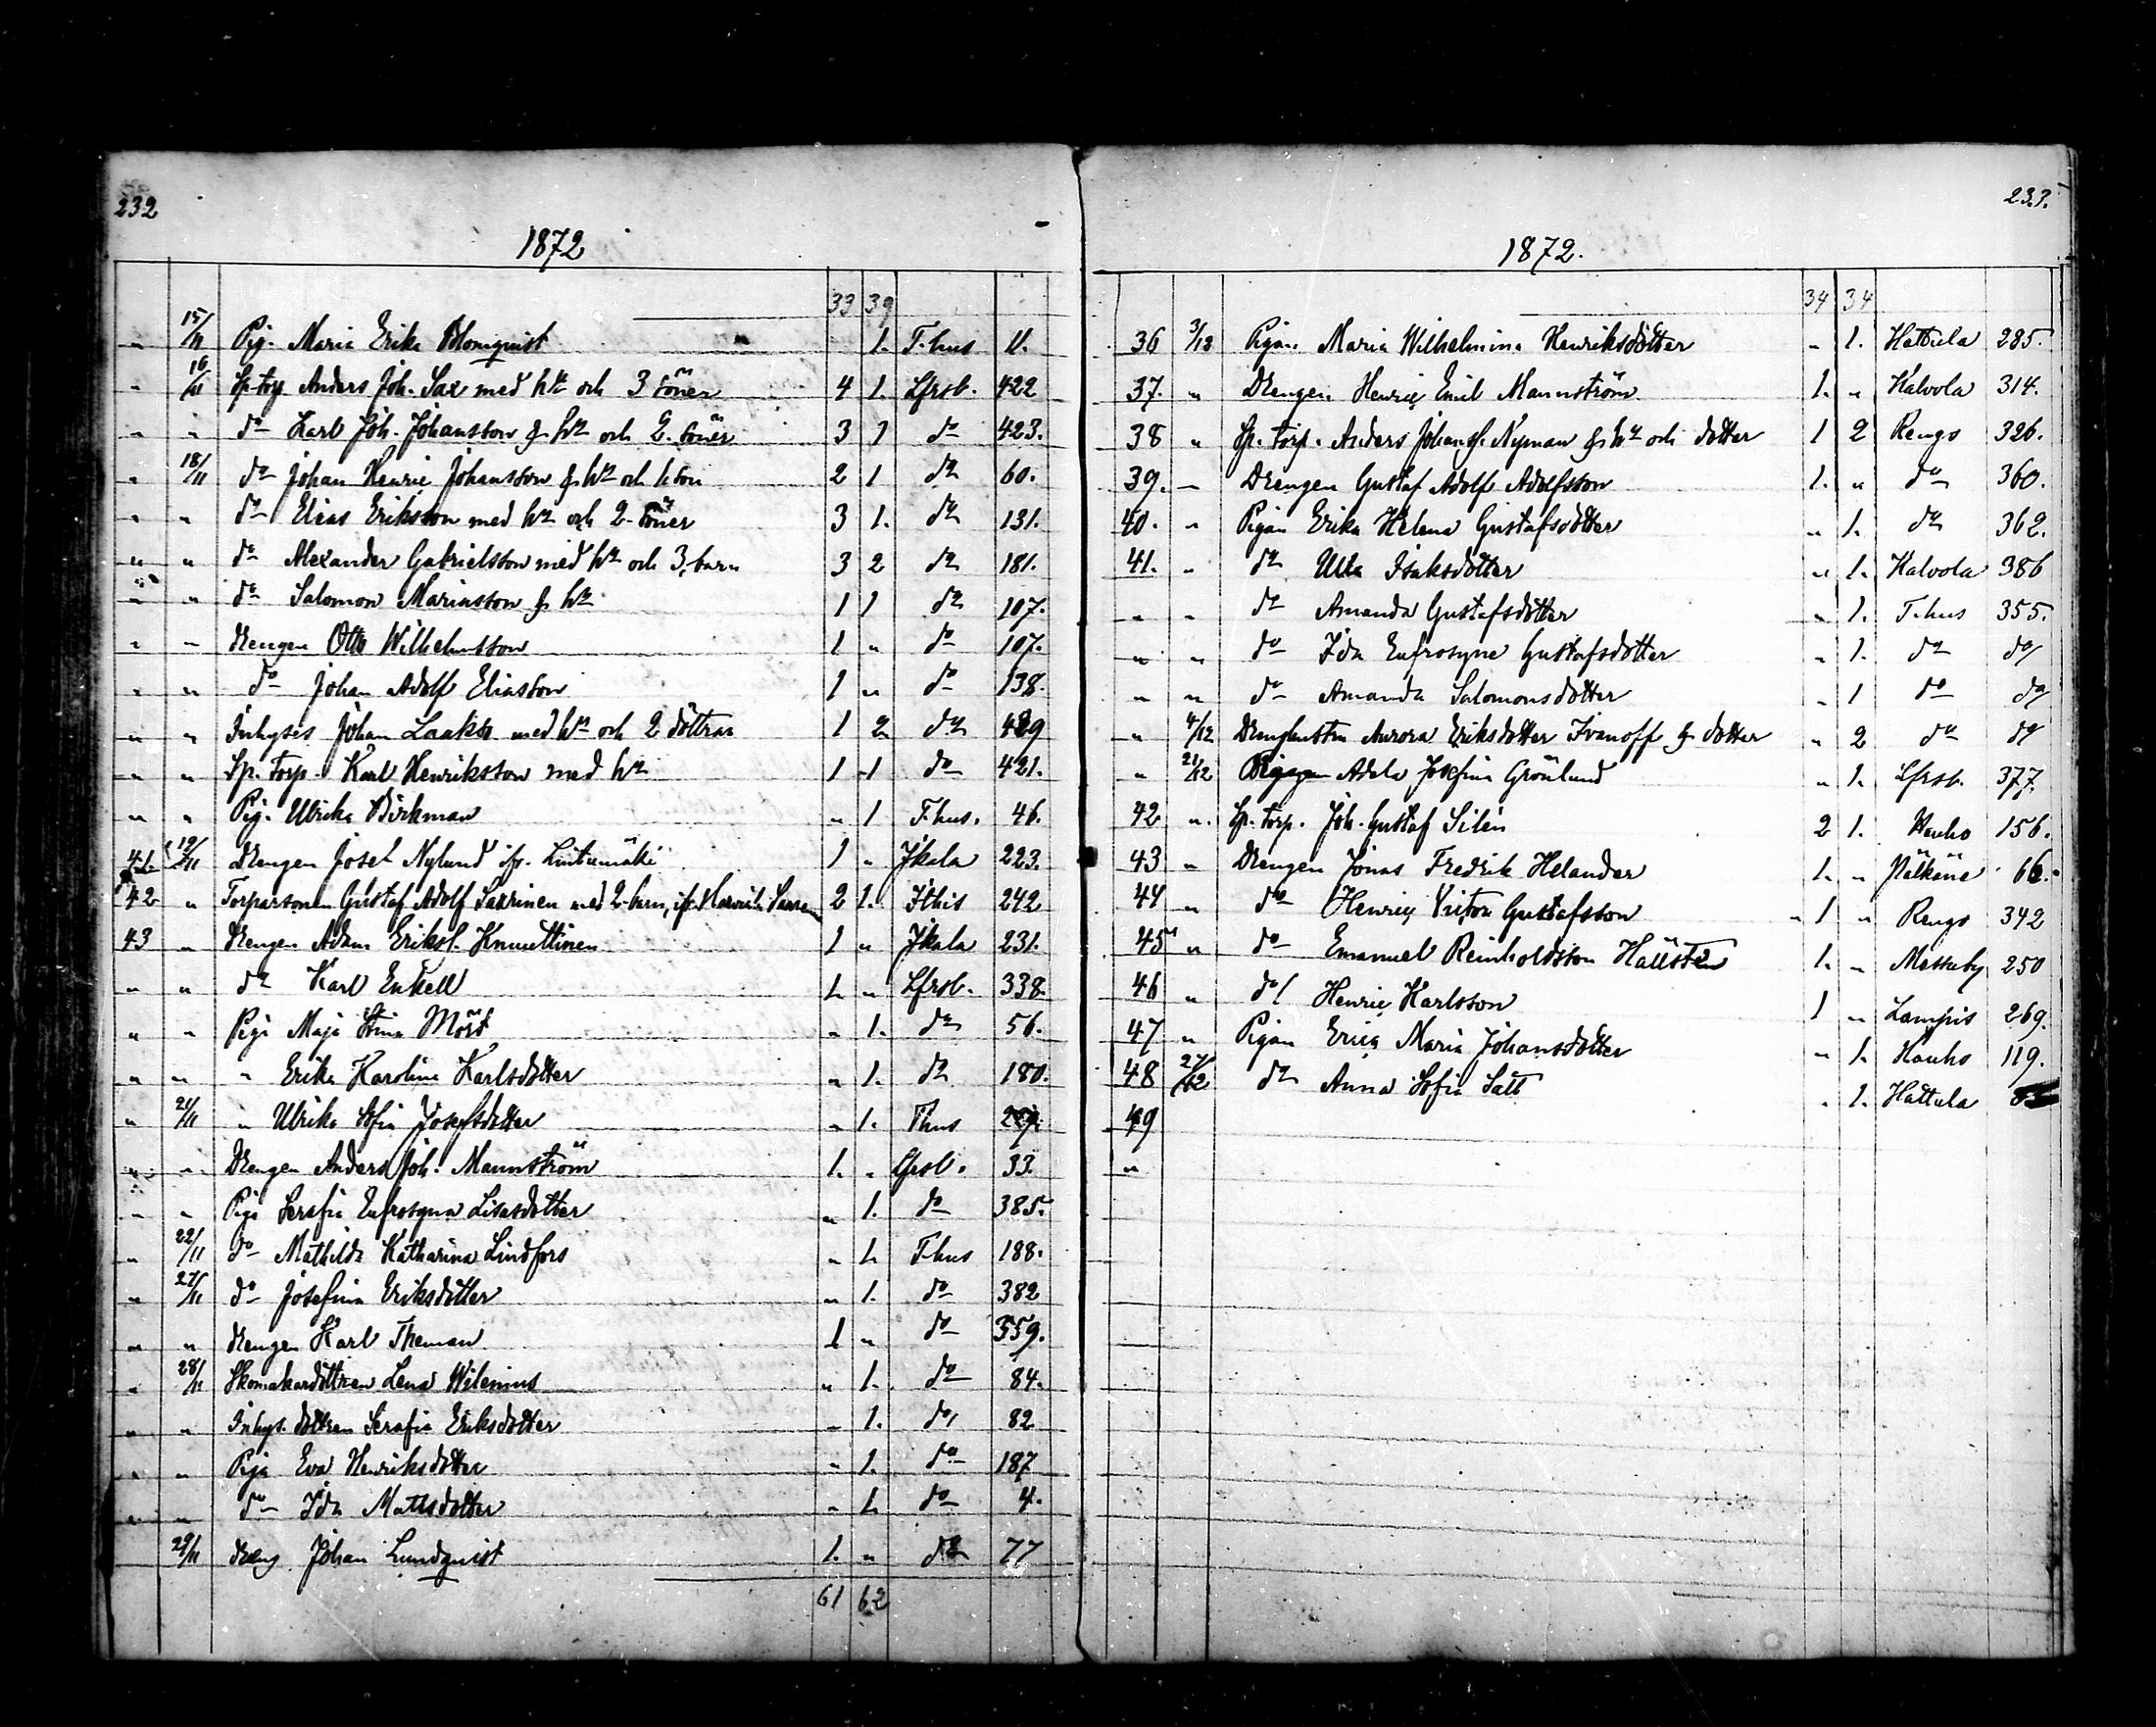 232
1872
33 39
" 15/11 Pig. Maria Erika Blomquist 1. T.hus 11.
" 16/11 Sp. torp. Anders Joh. Sax med hu och 3 söner 4 1. Lfrsb. 422
" " do Karl Joh. Johansson & hu och 2. söner 3 1 do 423.
" 18/11 do Johan Henric Johansson & hu och 1. son 2 1 do 60.
" " do Elias Eriksson med hu och 2 söner 3 1. do 131.
" " do Alexander Gabrielsson med hu och 3. barn 3 2 do 181.
" " do Salomon Mariasson & hu 1 1 do 107.
" " Drengen Otto Wilhelmsson 1 " do 107.
" " do Johan Adolf Eliasson 1 " do 138.
" " Inhyses Johan Laakso med hu och 2 döttrar 1 2 do 429
" " Sp. Torp. Karl Henriksson med hu 1 1 do 421.
" " Pig. Ulrika Björkman " 1 T.hus. 46.
41 19/11 Drengen Josef Nylund ifr. Luttumäki 1 " Jkala 223.
42 " Torparsonen Gustaf Adolf Saxrinen med 2 barn, ifr. 2 1. 242
43 " Drengen Adam Eriksf. Knuuttinen 1 " Jkala 231.
" " do Karl Enkell 1. " Lfrsb. 338.
" " Piga Maja Stina Mört " 1. do 56.
" " " Erika Karolina Karlsdotter " 1. do 180.
" 21/11 " Ulrika Sofia Josefsdotter " 1. Thus 229.
" " Drengen Anders Joh. Mannström 1. " Lfrsb. 33.
" " Piga Serafia Eufrosyna Lisasdotter " 1. do 385.
" 22/11 do Mathilda Katharina Lindfors " 1. T.hus 188.
" 27/11 do Josefina Eriksdotter " 1. do 382
" " Drengen Karl Theman 1 " do 359.
" 28/11 Skomakardottren Lena Wilenius " 1. do 84.
" " Inhys. dottren Serafia Eriksdotter " 1. do 82
" " Piga Eva Henriksdotter " 1. do 187
" " do Ida Mattsdotter " 1. do 4.
29/11 Dreng Johan Lundquist 1. " do 77
61 62
233.
1872.
34 34
36 3/12 Pigan Maria Wilhelmina Henriksdotter " 1. Hattula 285.
37. " Drengen Henric Emil Mannström 1. " Kalvola 314.
38 " Sp. torp. Anders Johansf. Nyman & hu och dotter 1 2 Rengo 326.
39. " Drengen Gustaf Adolf Adolfsson 1. " do 360.
40. " Pigan Erika Helena Gustafsdotter " 1. do 362.
41. " do Ulla Isaksdotter " 1. Kalvola 386
" " do Amanda Gustafsdotter " 1. T.hus 355.
" " do Ida Eufrosyne Gustafsdotter " 1. do do
" " do Amanda Salomonsdotter " 1 do do
" 4/12 Drenghustru Aurora Eriksdotter Ivanoff & dotter " 2 do do
" 21/12 Pigan Adela Josefina Grönlund " 1. Lfrsb. 377.
42 " Sp. torp. Joh. Gustaf Silén 2 1. Hauho 156.
43 " Drengen Jonas Fredrik Helander 1. " Pälkäne 66.
44 " do Henric Victor Gustafsson 1 " Rengo 342
45 " do Emanuel Reinholdsson Hällstén 1. " Messuby 250
46 " do Henric Karlsson 1 " Lampis 269.
47 " Pigan Erica Maria Johansdotter " 1. Hauho 119.
48 27/12 do Anna Sofia Sätt " 1. Hattula
49
"